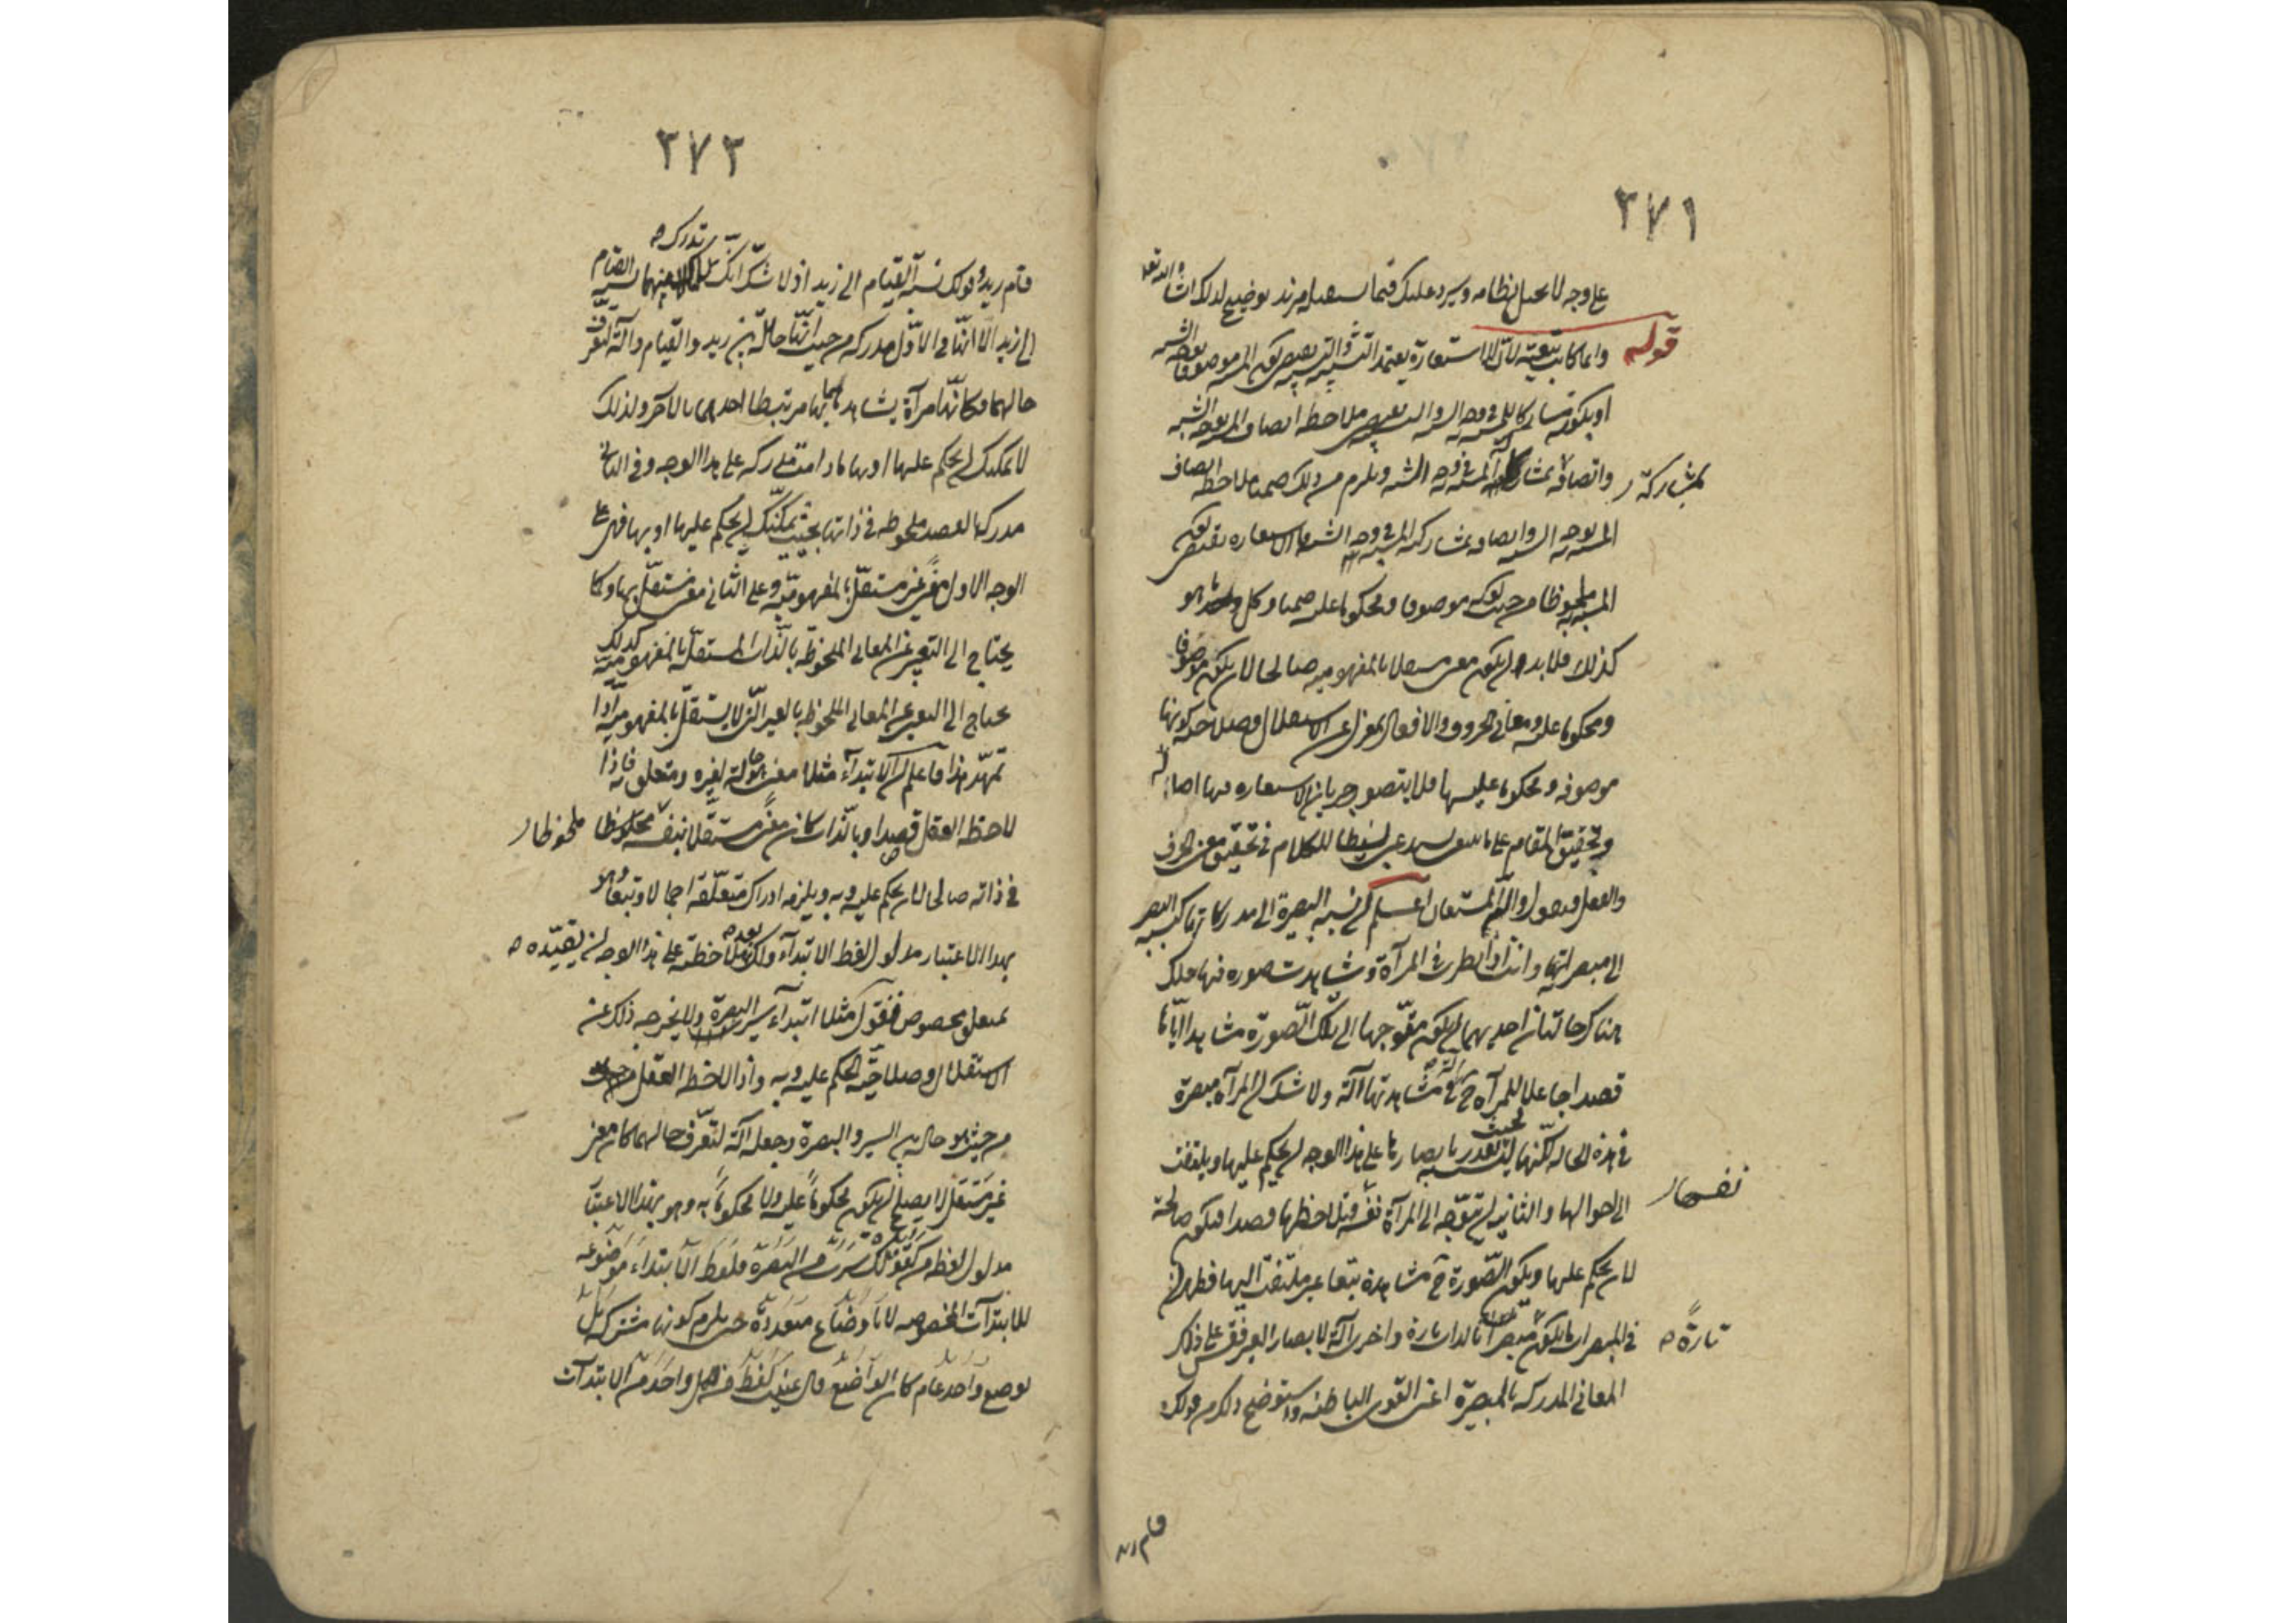 ٣٧١
على وجه لا يحيل نظامه وسيرد عليك فيما سيقبل مزيد توضيح لذلك ان شاء الله تعالى
قوله وانما كانت تبعية لان الاستعارة يعتمد التشبيه والتشبيه يقتضى كون المشبه موصوفا بوجه الشبه
او بكونه مشاركا للمشبه به فى وجه الشبه ملاحظة اتصاف المشبه بوجه الشبه
واتصافه بمشاركته المشبه به فى وجه الشبه ويلزم من ذلك ضمنا ملاحظة اتصاف
بمشاركة
المشبه به بوجه الشبه واتصافه بمشاركة المشبه فى وجه الشبه فالاستعارة تقتضى كون
المشبه به ملحوظا من حيث كونه موصوفا ومحكوما عليه ضمنا وكل ما هو
كذلك فلا بد ان يكون معنى مستقلا بالمفهومية صالحا لان يكون موصوفا
ومحكوما عليه ومعانى الحروف والافعال بمعزل عن الاستقلال وصلاحية كونها
موصوفة ومحكوما عليها فلا يتصور جريان الاستعارة فيها اصالة
وتحقيق المقام على ما ينبغى يستدعى بسطا للكلام فى تحقيق معنى الحرف
والفعل فنقول والله المستعان اعلم ان نسبة البصيرة الى مدركاتها كنسبة البصر
الى مبصراتها وانت اذا نظرت فى المرآة وشاهدت صورة فيها فلك
هناك حالتان احديهما ان يكون متوجها الى تلك الصورة مشاهدا اياها
قصدا جاعلا للمرآة ح آلة فى مشاهدتها ولا شك ان المرآة مبصرة
فى هذه الحالة لكنها ليست بحيث تقدر بابصارها على هذا الوجه ان يحكم عليها ويلتفت
الى احوالها والثانية ان يتوجه الى المرآة نفسها فتلاحظها قصدا فيكون صالحة
نفسها
لان يحكم عليها ويكون الصورة ح مشاهدة تبعا غير ملتفت اليها فظهر ان
فى المبصرات ما يكون مبصرا بالذات تارة واخرى آلة لابصار الغير فقس على ذلك
تارة
المعانى المدركة بالبصيرة اعنى القوى الباطنة واستوضح ذلك من قولك
قام زيد
٣٧٣
قام زيد وقولك نسبة القيام الى زيد اذ لا شك انك تدرك فيهما نسبة القيام
الى زيد الا انها فى الاول مدركة من حيث انها حالة بين زيد والقيام وآلة لتعرف
حالهما فكانها مرآة يشاهدهما بها مرتبطا احدهما بالآخر ولذلك
لا يمكنك ان يحكم عليها او بها مادامت مدركة على هذا الوجه وفى الثانى
مدركة بالقصد ملحوظة فى ذاتها بحيث يمكنك ان يحكم عليها او بها فهى على
الوجه الاول معنى غير مستقل بالمفهومية وعلى الثانى معنى مستقل بها وكما
يحتاج الى التعبير عن المعانى الملحوظة بالذات المستقلة بالمفهومية كذلك
يحتاج الى التعبير عن المعانى الملحوظة بالغير التى لا يستقل بالمفهومية اذا
تمهد هذا فاعلم ان الابتداء مثلا معنى هو حالة لغيره ومتعلق به فاذا
لاحظه العقل قصدا وبالذات كان معنى مستقلا بنفسه ملحوظا
ملحوظا
فى ذاته صالحا لان يحكم عليه وبه ويلزمه ادراك متعلقه اجمالا وتبعا وهو
بهذا الاعتبار مدلول لفظ الابتداء ولك بعد ملاحظته على هذا الوجه ان تقيده
بمتعلق مخصوص فتقول مثلا ابتداء سير البصرة ولا يخرجه ذلك عن
الاستقلال وصلاحية الحكم عليه وبه واذا لاحظه العقل
من حيث هو حالة بين السير والبصرة وجعله آلة لتعرف حالهما كان معنى
غير مستقل لا يصلح ان يكون محكوما عليه ولا محكوما به وهو بهذا الاعتبار
مدلول لفظ من كقولك سرت من البصرة فلفظ الابتداء موضوعة
للابتدآت المخصوصة لا باوضاع متعددة حتى يلزم كونها مشتركة بل
بوضع واحد عام كان الواضع قال عينت لفظ من لكل واحد من الابتدآت